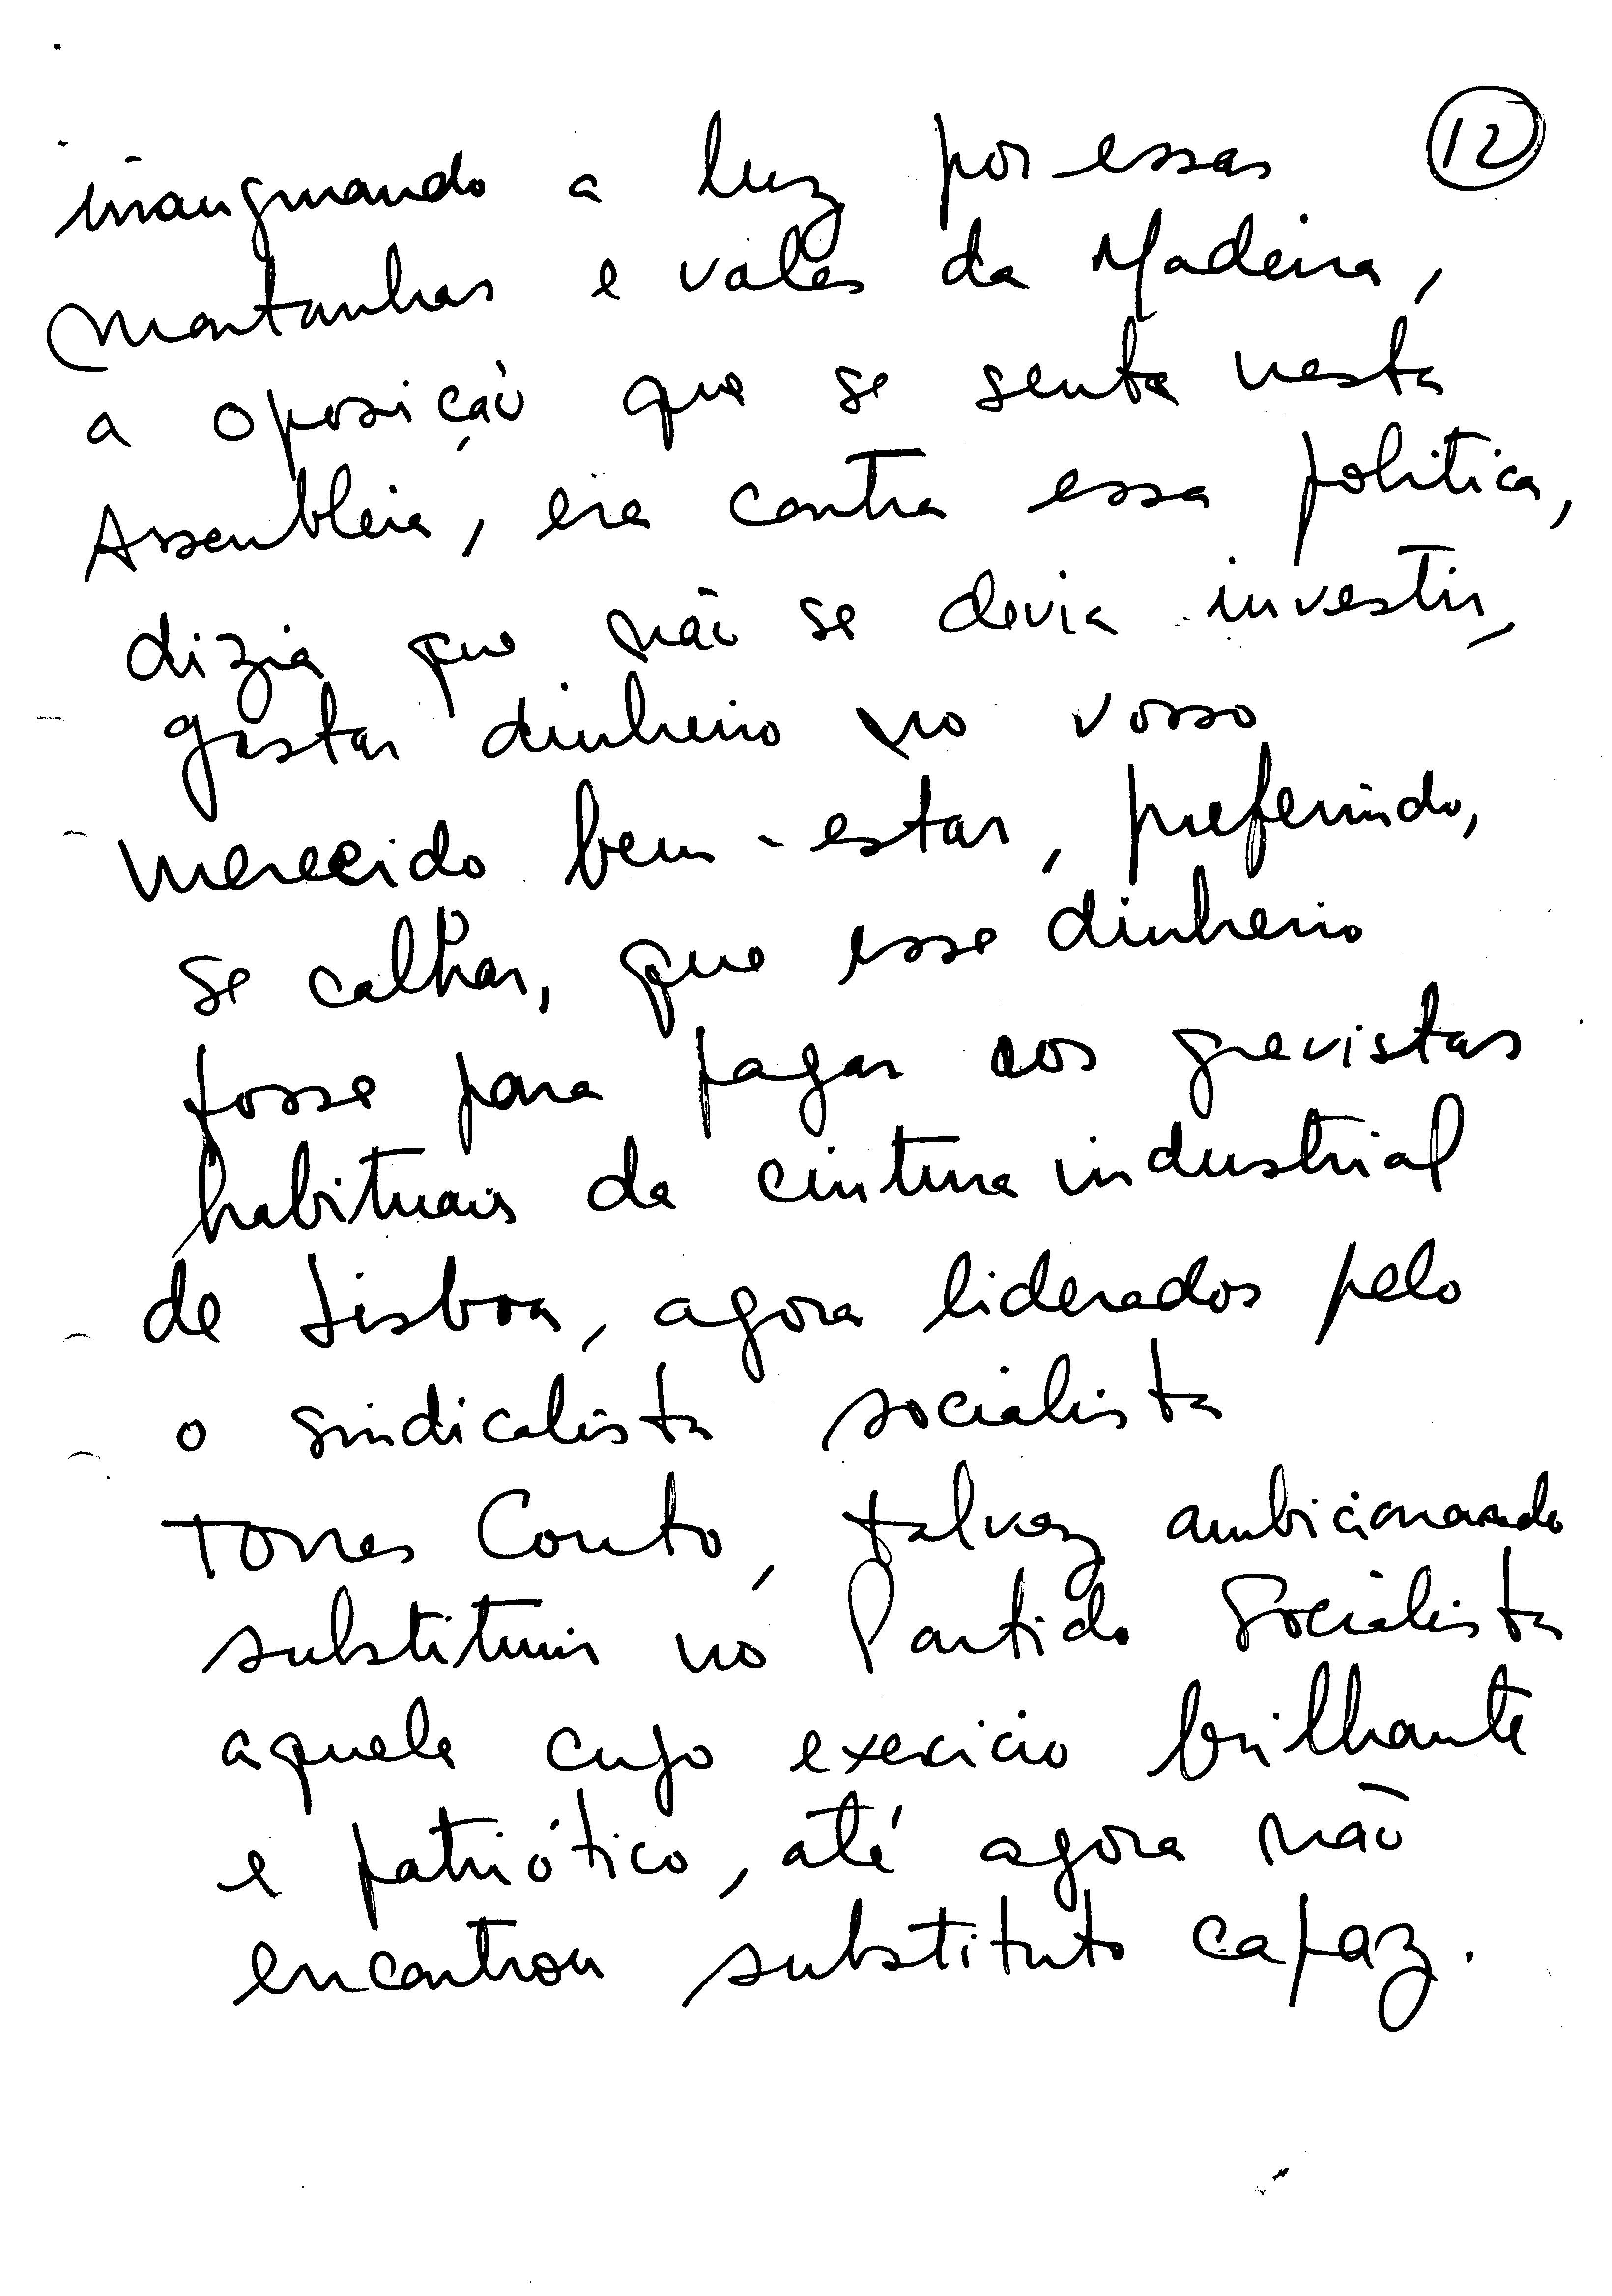 12
inaugurando a luz por essas
montanhas e vales da Madeira,
a oposição que se senta nesta
Assembleia, era contra essa política,
dizia que não se devia investir,
gastar dinheiro no vosso
merecido bem-estar, preferindo,
se calhar, que esse dinheiro
fosse para pagar aos grevistas
habituais da cintura industrial
de Lisboa, agora liderados pelo
o sindicalista socialista
Torres Couto, talvez ambicionando
substituir no Partido Socialista
aquele cujo exercício brilhante
e patriótico, até agora não
encontrou substituto capaz.